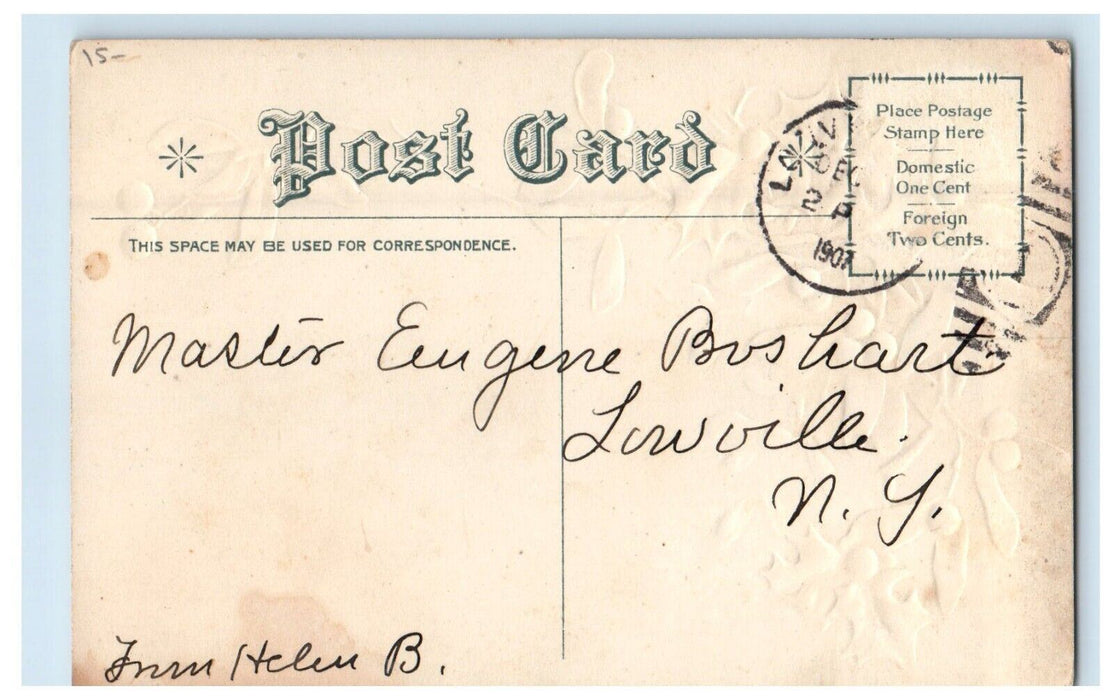 15-
Post Card
Place Postage
Stamp Here
Domestic
One Cent
Foreign
Two Cents.
DEC
2
P
1907
THIS SPACE MAY BE USED FOR CORRESPONDENCE.
Master Eugene Boshart
Lowville.
N. Y.
From Helen B.